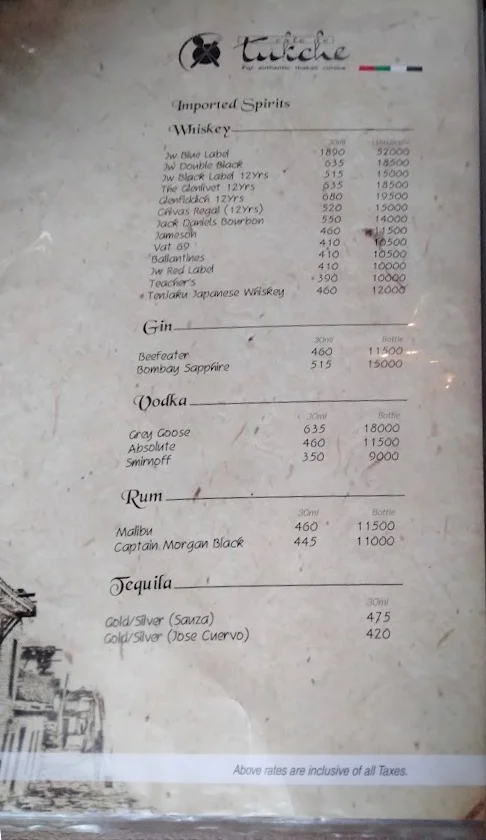 Tukche
Imported Spirits
Whiskey
30ml
Jw Blue Label 1890 52000
Jw Double Black 635 18500
Jw Black Label 12Yrs 515 15000
The Glenlivet 12Yrs 635 18500
Glenfiddich 12Yrs 680 19500
Chivas Regal (12Yrs) 520 15000
Jack Daniels Bourbon 550 14000
Jameson 460 11500
Vat 69 410 10500
Ballantines 410 10500
Jw Red Label 410 10000
Teacher's 390 10000
Tenjaku Japanese Whiskey 460 12000
Gin
30ml Bottle
Beefeater 460 11500
Bombay Sapphire 515 15000
Vodka
30ml Bottle
Grey Goose 635 18000
Absolute 460 11500
Smirnoff 350 9000
Rum
30ml Bottle
Malibu 460 11500
Captain Morgan Black 445 11000
Tequila
30ml
Gold/Silver (Sauza) 475
Gold/Silver (Jose Cuervo) 420
Above rates are inclusive of all Taxes.